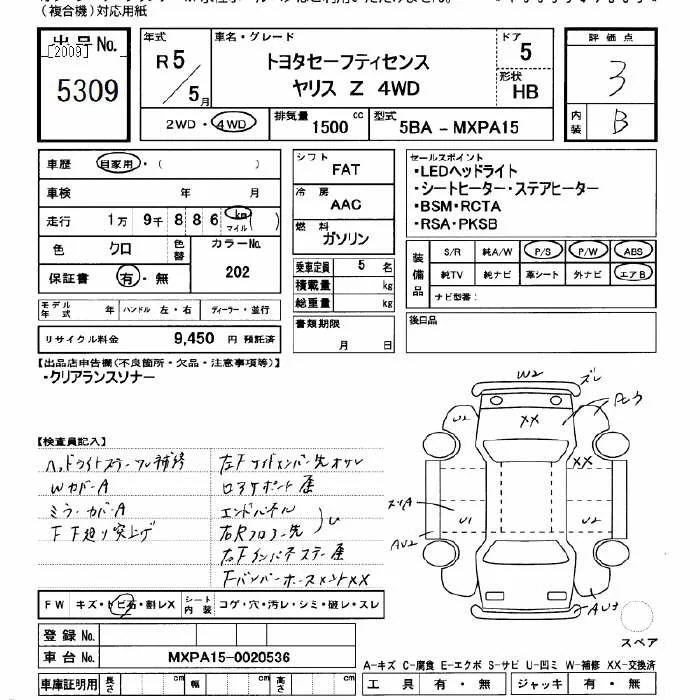 （複合機）対応用紙
出品No.
[2009]
5309
年式
R5
5月
車名・グレード
トヨタセーフティセンス
ヤリス Z 4WD
ドア
5
形状
HB
2WD・4WD
排気量
1500cc
型式
5BA-MXPA15
評価点
3
内装
B
車歴 自家用・（ ）
車検 年 月
走行 1万 9千 8 8 6 km マイル ( )
色 クロ 色替 カラーNo.
保証書 有・無 202
モデル年式 年 ハンドル 左・右 ディーラー・並行
リサイクル料金 9,450 円 預託済
シフト FAT
冷房 AAC
燃料 ガソリン
乗車定員 5 名
積載量 kg
総重量 kg
書類期限
月 日
セールスポイント
・LEDヘッドライト
・シートヒーター・ステアヒーター
・BSM・RCTA
・RSA・PKSB
装備品
S/R 純A/W P/S P/W ABS
純TV 純ナビ 革シート 外ナビ エアB
ナビ型番：
後日品
【出品店申告欄(不良箇所・欠品・注意事項等)】
・クリアランスソナー
【検査員記入】
ヘッドライトステー フレ補修
WカバーA
ミラーカバーA
下廻り突上げ
エンドパネル
U
FバンパーホースメントXX
W2
ズレ
U2
XX
XX
U1
U2
AU2
AU3
FW キズ・トビ石・割レX シート内装 コゲ・穴・汚レ・シミ・破レ・スレ
登録No.
車台No. MXPA15-0020536
車庫証明用 長さ cm 幅 cm 高さ cm
スペア
A-キズ C-腐食 E-エクボ S-サビ U-凹ミ W-補修 XX-交換済
工具 有・無 ジャッキ 有・無